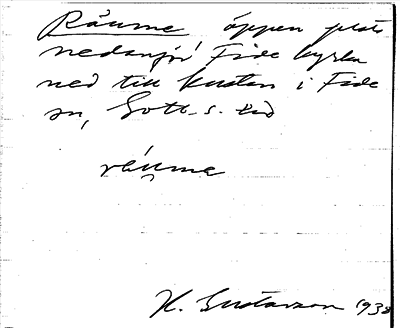 Räume öppen plats
nedanför Fide kyrka
ned till kusten i Fide
sn, Gotl. s. hd
räume
H. Gustavson 1938